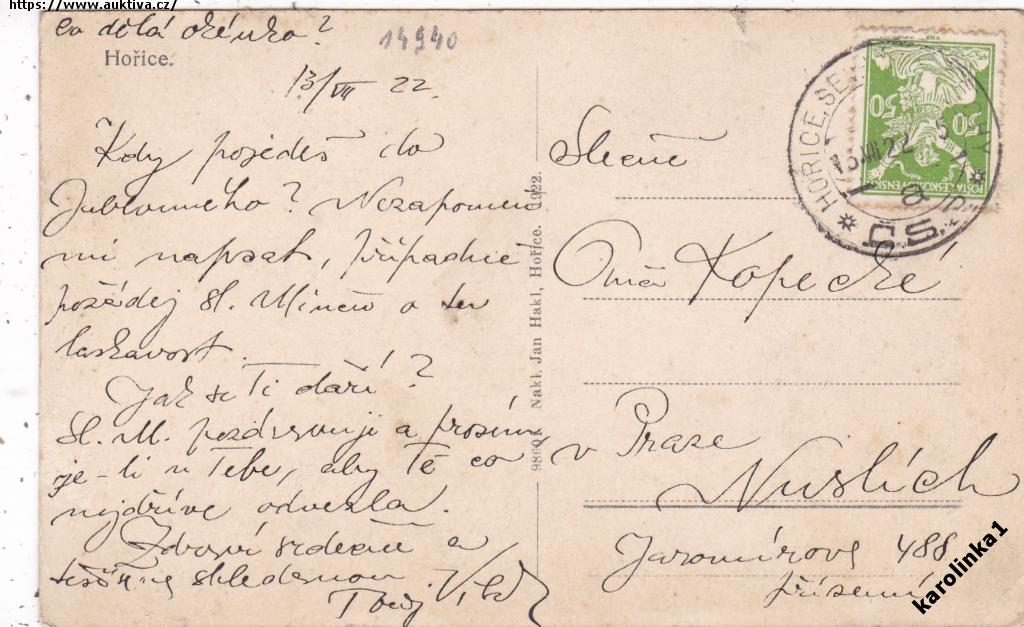 https://www.auktiva.cz/
co dělá okénko?
14940
Hořice.
13/VII 22.
Kdy pojedeš do
Jublonného? Nezapomeň
mi napsat, případně
požádej sl. Minču o tu
laskavost.
Jak se Ti daří?
Sl. M. pozdravuji a prosím
je-li u Tebe, aby Tě co
nejdříve odvezla.
Zdraví srdečně a
těší se shledanou
Tvůj
98601 Nakl. Jan Hakl, Hořice. 1922.
HOŘICE
13.VII.22
ČS
50 50
POŠTA ČESKOSLOVENSKÁ
Slečně
Kopecké
v Praze
Nuslích
Jaromírova 488
přízemí
karolinka1